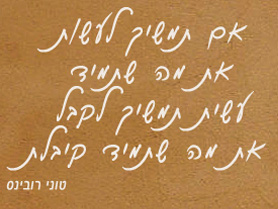 אם תמשיך לעשות
את מה שתמיד
עשית תמשיך לקבל
את מה שתמיד קיבלת
טוני רובינס